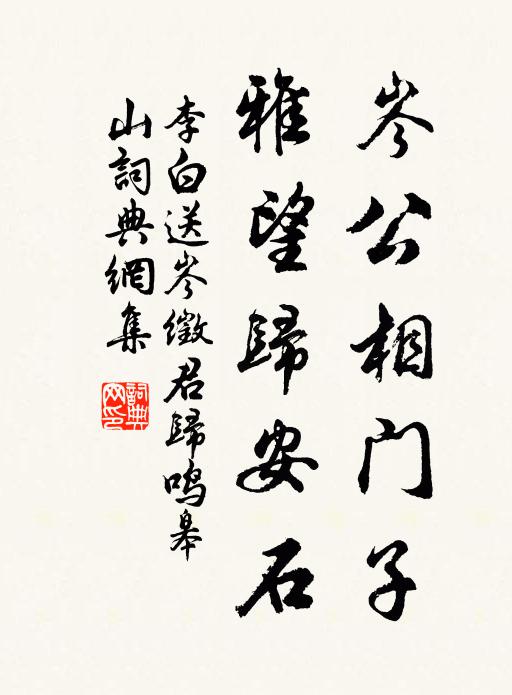 岑公相门子
雅望歸安石
李白送岑徵君歸鳴皋
山詞典網集
詞典
网印